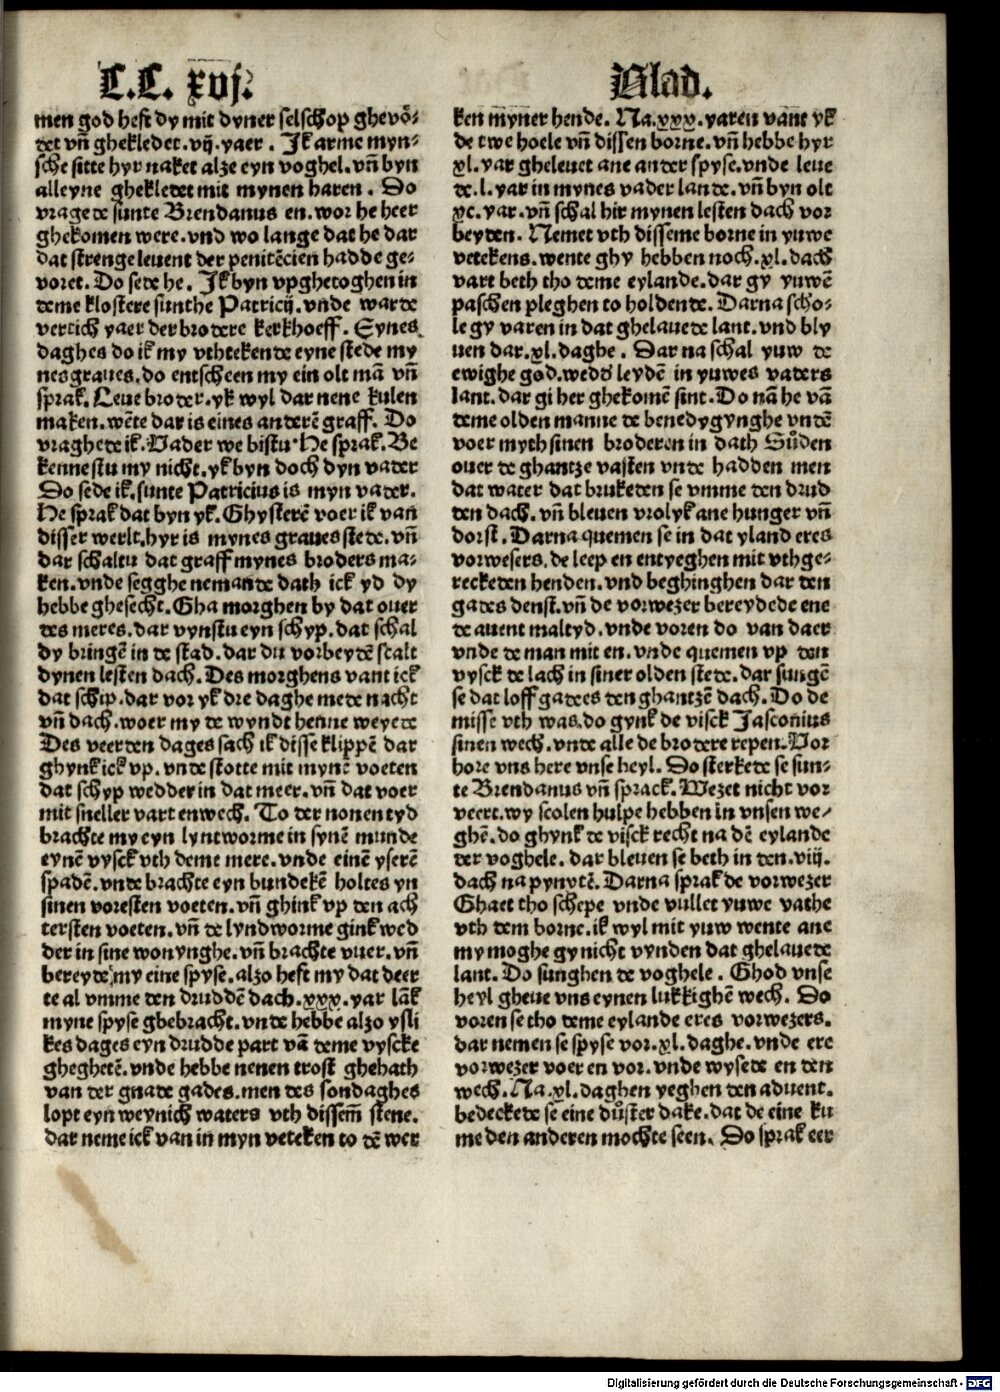 C.C. xvij.
Blad.
men god heft dy mit dyner selschop ghevö-
det vn̄ ghekledet. vij. yaer. Ik arme myn-
sche sitte hyr naket alze eyn voghel. vn̄ byn
alleyne ghekledet mit mynen haren. Do
vragede sunte Brendanus en. wor he heer
ghekomen were. vnd wo lange dat he dar
dat strenge leuent der penitēcien hadde ge-
voret. Do sede he. Ik byn vpghetoghen in
deme klostere sunthe Patricij. vnde warde
vertich yaer der brodere kerkhoeff. Eynes
daghes do ik my vthtekende eyne stede my
nes graues. do entscheen my ein olt mā vn̄
sprak. Leue broder. yk wyl dar nene kulen
maken. wēte dar is eines anderē graff. Do
vraghede ik. Vader we bistu. He sprak. Be
kennestu my nicht. yk byn doch dyn vader
Do sede ik. sunte Patricius is myn vader.
He sprak dat byn yk. Ghysterē voer ik van
disser werlt. hyr is mynes graues stede. vn̄
dar schaltu dat graff mynes broders ma-
ken. vnde segghe nemande dath ick yd dy
hebbe ghesecht. Gha morghen by dat ouer
des meres. dar vynstu eyn schyp. dat schal
dy bringē in de stad. dar du vorbeydē scalt
dynen lesten dach. Des morghens vant ick
dat schip. dar vor yk dre daghe mede nacht
vn̄ dach. woer my de wyndt henne weyede
Des veerden dages sach ik disse klippē dar
ghynk ick vp. vnde stotte mit mynē voeten
dat schyp wedder in dat meer. vn̄ dat voer
mit sneller vart enwech. To der nonen tyd
brachte my eyn lyntworme in synē munde
eynē vysck vth deme mere. vnde einē yserē
spadē. vnde brachte eyn bundekē holtes yn
sinen voresten voeten. vn̄ ghink vp den ach
tersten voeten. vn̄ de lyndworme gink wed
der in sine wonynghe. vn̄ brachte vuer. vn̄
bereyde my eine spyse. alzo heft my dat deer
te al vmme den druddē dach. xxx. yar lāk
myne spyse ghebracht. vnde hebbe alzo ysli
kes dages eyn drudde part vā deme vyscke
gheghetē. vnde hebbe nenen trost ghehath
van der gnade gades. men des sondaghes
lopt eyn weynich waters vth dissem̄ stene.
dar neme ick van in myn veteken to dē wer
ken myner hende. Na. xxx. yaren vant yk
de twe hoele vn̄ dissen borne. vn̄ hebbe hyr
xl. yar gheleuet ane ander spyse. vnde leue
de. l. yar in mynes vader lande. vn̄ byn olt
xc. yar. vn̄ schal hir mynen lesten dach vor
beyden. Nemet vth disseme borne in yuwe
vetekens. wente ghy hebben noch. xl. dach
vart beth tho deme eylande. dar gy yuwē
paschen pleghen to holdende. Darna scho-
le gy varen in dat ghelauede lant. vnd bly
uen dar. xl. daghe. Dar na schal yuw de
ewighe god. wedd' leydē in yuwes vaders
lant. dar gi her ghekomē sint. Do nā he vā
deme olden manne de benedygynghe vndē
voer myth sinen broderen in dath Süden
ouer de ghantze vasten vnde hadden men
dat water dat brukeden se vmme den drud
den dach. vn̄ bleuen vrolyk ane hunger vn̄
dorst. Darna quemen se in dat yland eres
vorwesers. de leep en entyeghen mit vthge-
reckeden henden. vnd beghinghen dar den
gades denst. vn̄ de vorwezer bereydede ene
de auent maltyd. vnde voren do van daer
vnde de man mit en. vnde quemen vp den
vysck de lach in siner olden stede. dar sungē
se dat loff gades den ghantzē dach. Do de
misse vth was. do gynk de visck Jasconius
sinen wech. vnde alle de brodere repen. Vor
hore vns here vnse heyl. Do sterkede se sun-
te Brendanus vn̄ sprack. Wezet nicht vor
veert. wy scolen hulpe hebben in vnsen we-
ghē. do ghynk de visck recht na dē eylande
der voghele. dar bleuen se beth in den. viij.
dach na pynxtē. Darna sprak de vorwezer
Ghaet tho schepe vnde vullet yuwe vathe
vth dem borne. ik wyl mit yuw wente ane
my moghe gy nicht vynden dat ghelauede
lant. Do sunghen de voghele. Ghod vnse
heyl gheue vns eynen lukkighē wech. Do
voren se tho deme eylande eres vorwezers.
dar nemen se spyse vor. xl. daghe. vnde ere
vorwezer voer en vor. vnde wysede en den
wech. Na. xl. daghen yeghen den aduent.
bedeckede se eine düster dake. dat de eine ku
me den anderen mochte seen. Do sprak eer
Digitalisierung gefördert durch die Deutsche Forschungsgemeinschaft - DFG